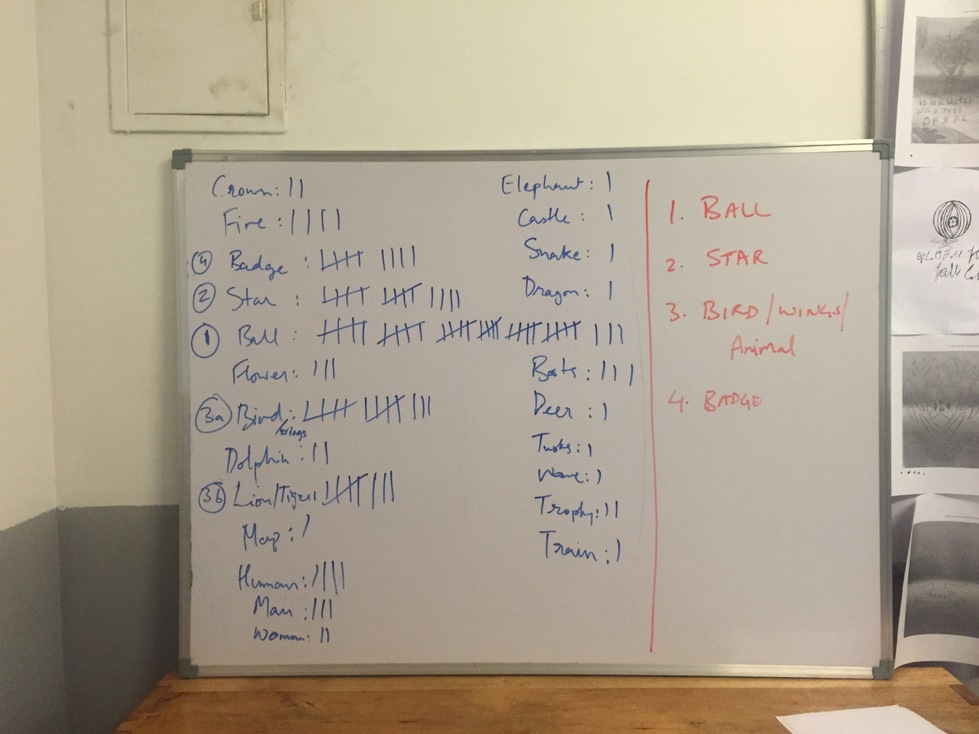 Crown: ||
Fire : ||||
④ Badge : 卌 ||||
② Star : 卌 卌 ||||
① Ball : 卌 卌 卌 卌 卌 卌 |||
Flower: |||
③a Bird: 卌 卌 |||
/wings
Dolphin: ||
③b Lion/Tiger: 卌 |||
Map: /
Human: ||||
Man: |||
Woman: ||
Elephant: |
Castle: |
Snake: |
Dragon: |
Boots: |||
Deer: |
Tusks: |
Wave: |
Trophy: ||
Train: |
1. BALL
2. STAR
3. BIRD/WINGS/
Animal
4. BADGE